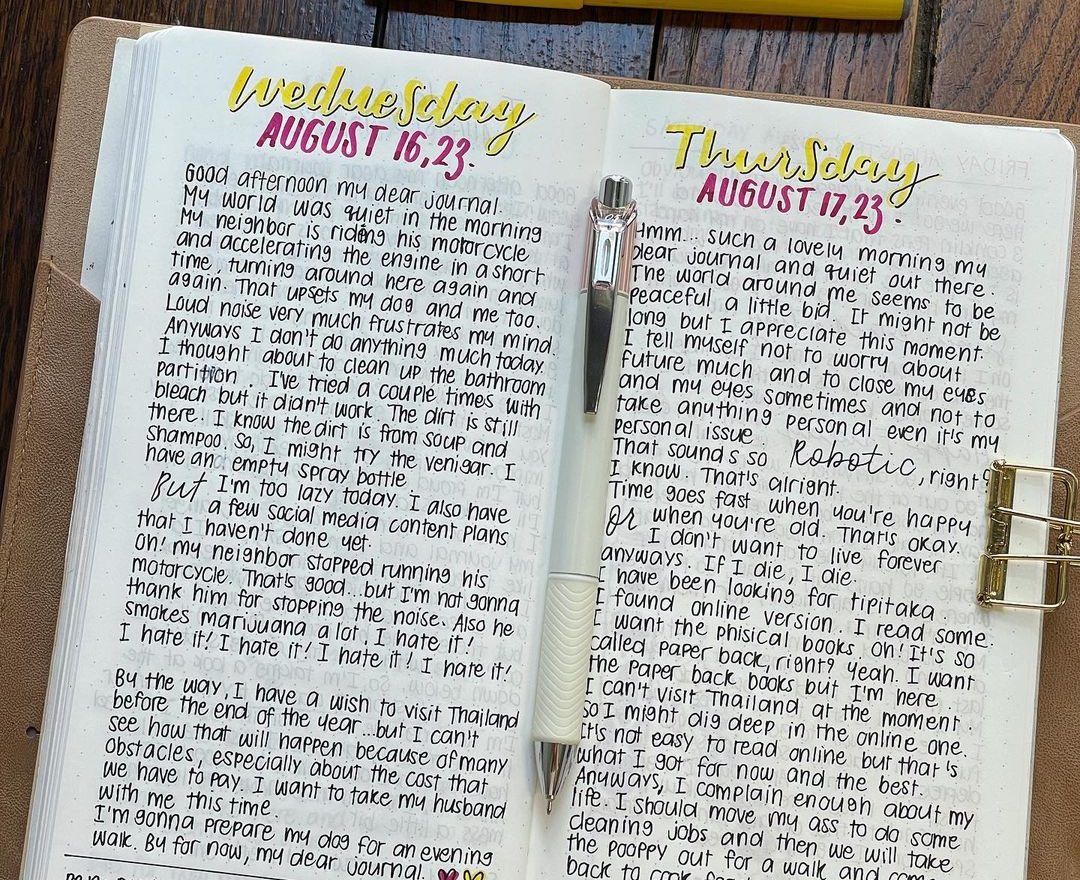 Wednesday
AUGUST 16,23.
Good afternoon my dear journal.
My world was quiet in the morning
My neighbor is riding his motorcycle
and accelerating the engine in a short
time, turning around here again and
again. That upsets my dog and me too.
Loud noise very much frustrates my mind.
Anyways I don't do anything much today.
I thought about to clean up the bathroom
partition. I've tried a couple times with
bleach but it didn't work. The dirt is still
there. I know the dirt is from soup and
shampoo. So, I might try the venigar. I
have and empty spray bottle.
But I'm too lazy today. I also have
a few social media content plans
that I haven't done yet.
Oh! my neighbor stopped running his
motorcycle. That's good...but I'm not gonna
thank him for stopping the noise. Also he
smokes marijuana a lot. I hate it!
I hate it! I hate it! I hate it! I hate it!
By the way, I have a wish to visit Thailand
before the end of the year...but I can't
see how that will happen because of many
obstacles, especially about the cost that
we have to pay. I want to take my husband
with me this time.
I'm gonna prepare my dog for an evening
walk. By for now, my dear journal.
Thursday
AUGUST 17,23.
Hmm... such a lovely morning my
dear journal and quiet out there.
The world around me seems to be
peaceful a little bid. It might not be
long but I appreciate this moment.
I tell myself not to worry about
future much and to close my eyes
and my eyes sometimes and not to
take anything personal even it's my
personal issue.
That sounds so Robotic, right?
I know. That's alright.
Time goes fast when you're happy
or when you're old. That's okay.
I don't want to live forever
anyways. If I die, I die.
I have been looking for tipitaka.
I found online version. I read some.
I want the phisical books oh! It's so
called paper back, right? Yeah. I want
the paper back books but I'm here.
I can't visit Thailand at the moment.
So I might dig deep in the online one.
It's not easy to read online but that's
what I got for now and the best.
Anyways, I complain enough about my
life. I should move my ass to do some
cleaning jobs and then we will take
the pooppy out for a walk and come
back to cook